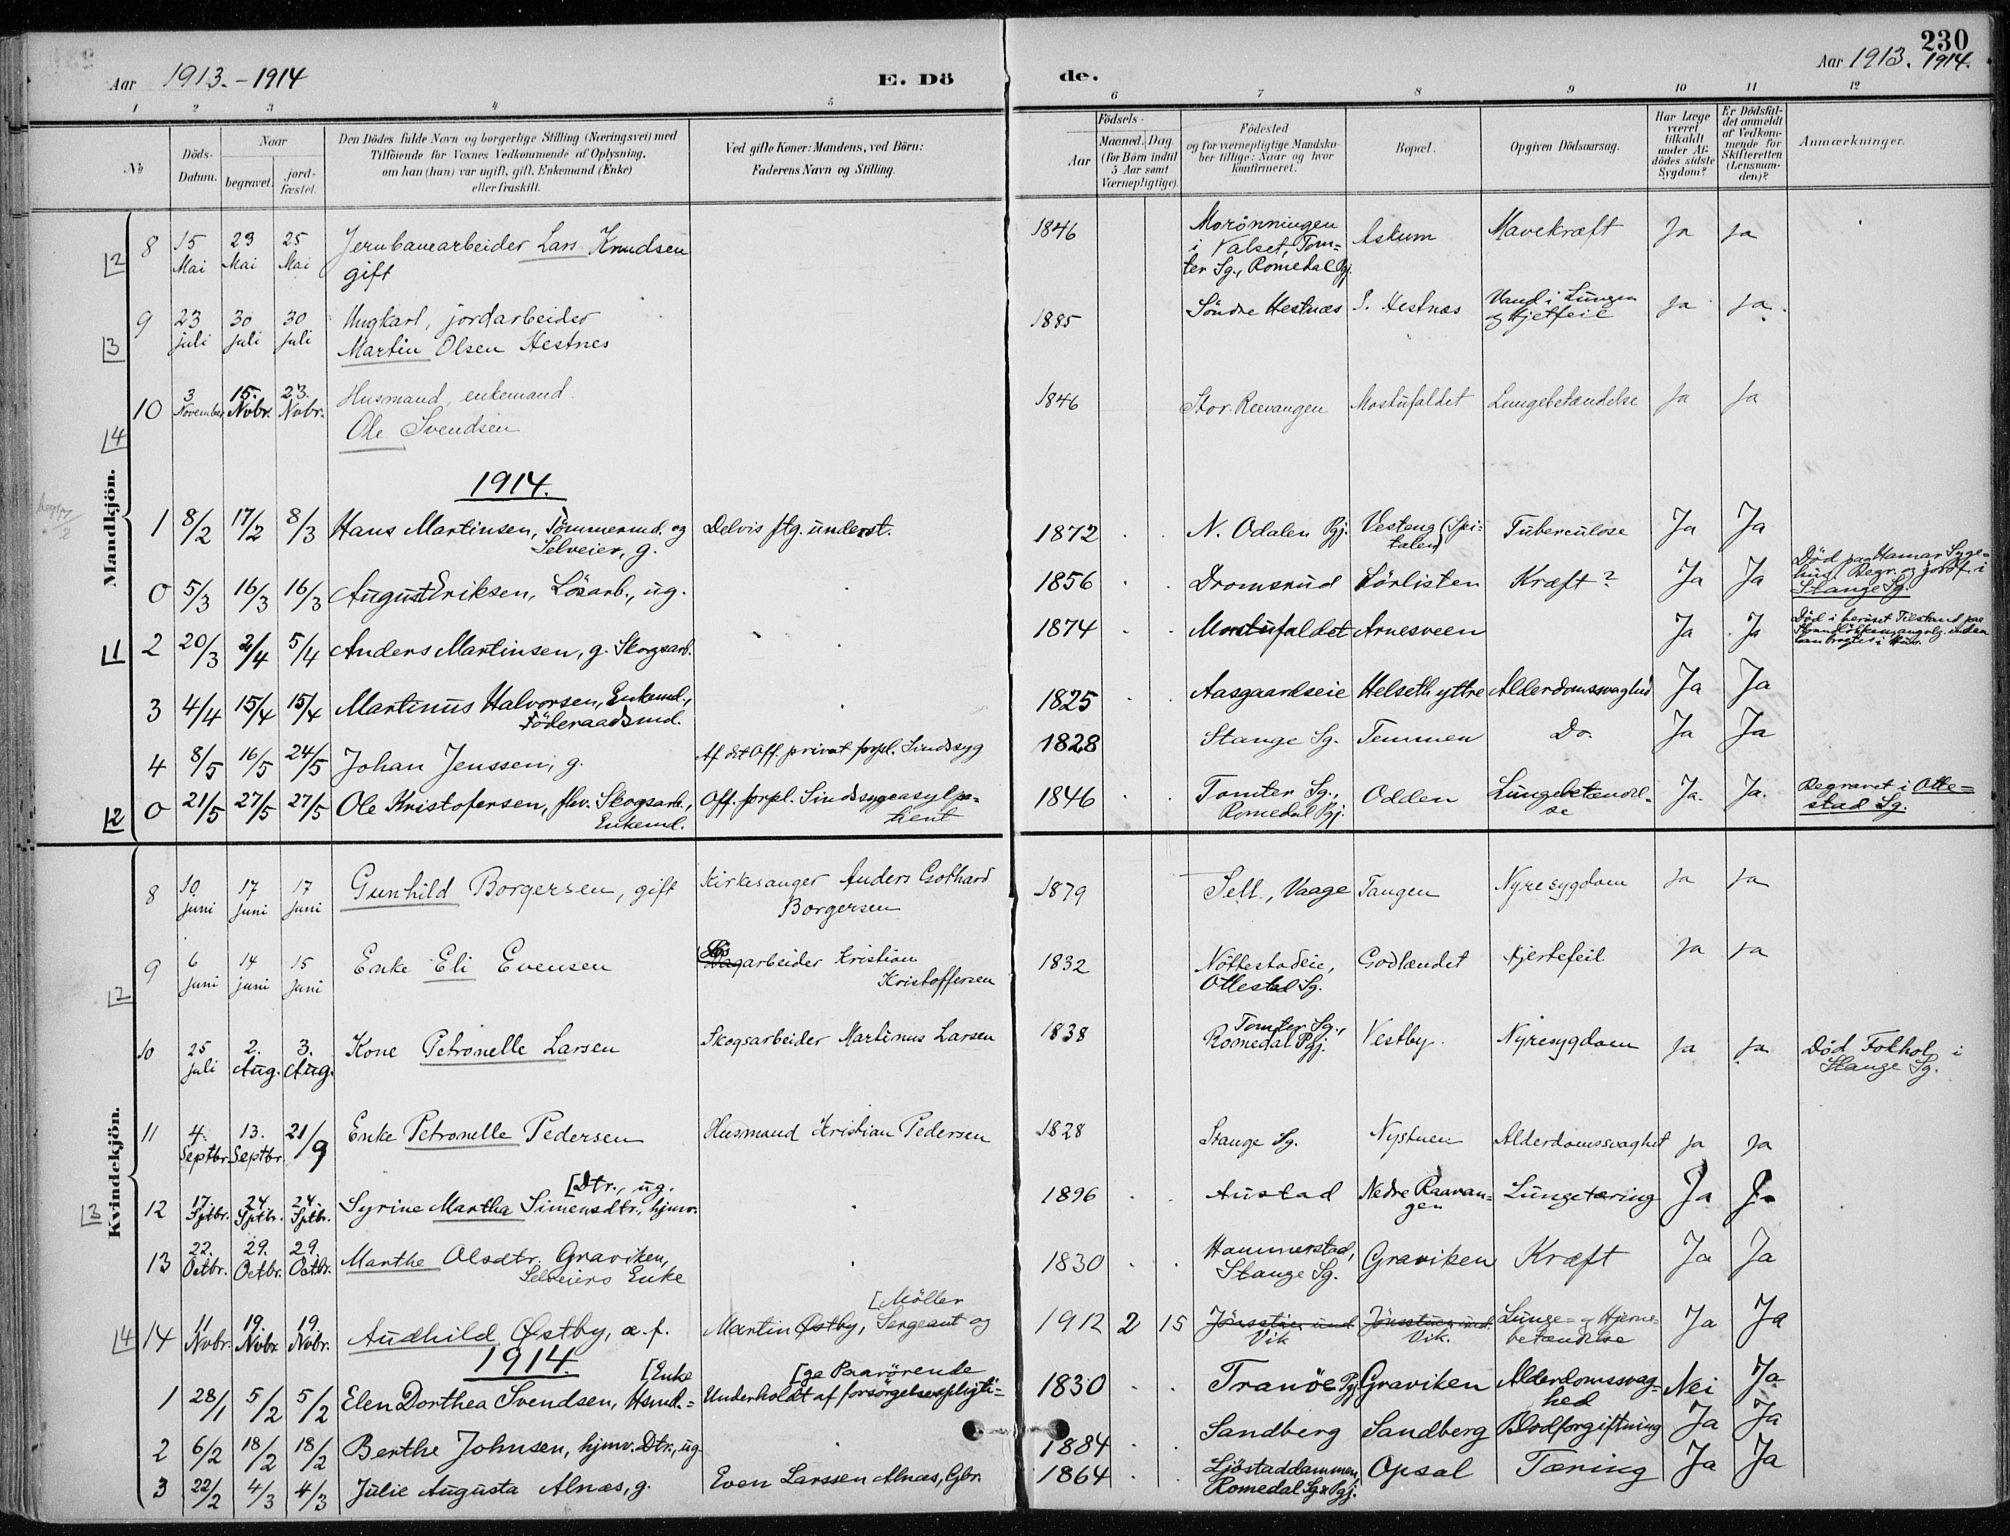 230
Aar 1913.-1914
E. Dö
de.
Aar 1913. 1914.
1 2 3 4 5 6 7 8 9 10 11 12
No
Döds-Datum.
Naar
begravet.
jord-fæstet.
Den Dödes fulde Navn og borgerlige Stilling (Næringsvei) med
Tilföiende for Voxnes Vedkommende af Oplysning,
om han (hun) var ugift, gift, Enkemand (Enke)
eller fraskilt.
Ved gifte Koner: Mandens, ved Börn:
Faderens Navn og Stilling.
Födsels-
Aar
Maaned. Dag.
(for Börn indtil
5 Aar samt
Værnepligtige)
Födested
og for værnepligtige Mandska-
ber tillige: Naar og hvor
konfirmeret.
Bopæl.
Opgiven Dödsaarsag.
Har Læge
været
tilkaldt
under Af-
dödes sidste
Sygdom?
Er Dödsfal-
det anmeldt
af Vedkom-
mende for
Skifteretten
(Lensman-
den)?
Anmærkninger.
Mandkjön.
8 15 Mai 23 Mai 25 Mai Jernbanearbeider Lars Knudsen 1846 Morönningen Askum Mavekræft Ja ja
gift i Valset, Tom-
ter Sg., Romedal Pgj.
9 23 juli 30 juli 30 juli Ungkarl, jordarbeider 1885 Söndre Hestnæs S. Hestnæs Vand i Lungen ja ja.
Martin Olsen Hestnes og Hjetfeil
10 3 November 15. Novbr. 23. Novbr. Husmand, enkemand. 1846 Stor. Reevangen Mostufaldet Lungebetændelse ja ja
Ole Svendsen
1914.
1 8/2 17/2 8/3 Hans Martinsen, Tömmermd. og Delvis ftg. underst. 1872 N. Odalen Pgj. Vesteng (Spi- Tuberculose Ja Ja
Selveier, g. talen)
0 5/3 16/3 16/3 August Eriksen, Lösarb., ug. 1856 Dromsrud Lörlisten Kræft? Ja Ja Död paa Hamar Syge-
hus. Begr. og jordf. i
Stange Sg.
2 20/3 2/4 5/4 Anders Martinsen, g. Skogsarb. 1874 Mostufaldet Arnesveen Ja Ja Död i beruset Tilstand paa
3 4/4 15/4 15/4 Martinus Halvorsen, Enkemd., 1825 Aasgaardseie Helseth yttre Alderdomssvaghed Ja Ja
Föderaadsmd.
4 8/5 16/5 24/5 Johan Jenssen, g. Af det Off. privat forpl. Sindssyg 1828 Stange Sg. Temmen Do. Ja Ja
0 21/5 27/5 27/5 Ole Kristofersen, fhv. Skogsarb., Off. forpl. Sindssygeasylpa- 1846 Tomter Sg., Odden Lungebetændel- Ja. Ja. Begravet i Otte-
Enkemd. tient Romedal Pgj. se stad Sg.
Kvindekjön.
8 10 juni 17 juni 17 juni Gunhild Borgersen, gift Kirkesanger Anders Gothard 1879 Sell., Vaage Tangen Nyresygdom ja ja
Borgersen
9 6 juni 14 juni 15 juni Enke Eli Evensen Løsarbeider Kristian 1832 Nöttestadeie, Godlændet Hjertefeil ja ja
Kristoffersen Ottestad Sg.
10 25 juli 2. Aug. 3. Aug. Kone Petronelle Larsen Skogsarbeider Martinus Larsen 1838 Tomter Sg., Vestby. Nyresygdom ja ja Död Fokhol i
Romedal Pgj. Stange Sg.
11 4. Septbr. 13. Septbr. 21/9 Enke Petronelle Pedersen Husmand Kristian Pedersen 1828 Stange Sg. Nystuen Alderdomssvaghet ja ja
[Dtr., ug.
12 17. Sptbr. 24. Sptbr. 24. Sptbr. Syrine Martha Simensdtr., hjmv. 1896 Austad Nedre Raavan- Lungetæring Ja Ja
gen
13 22. Octbr. 29. Octbr. 29. Octbr. Marthe Olsdtr. Graviken, 1830 Hammerstad, Graviken Kræft Ja Ja
Selveiers Enke Stange Sg.
[Möller
14 11 Novbr. 19. Novbr. 19. Novbr. Audhild Østby, æ. f. Martin Østby, Sergeant og 1912 2 15 Vik Vik. Lunge- og Hjerne- Ja Ja
betændelse
1914.
[Enke [ge Paarörende
1 28/1 5/2 5/2 Elen Dorthea Svendsen, Hsmd.= Underholdt af forsörgelsespligti= 1830 Tranöe Pgj. Graviken Alderdomssvag= Nei Ja
hed
2 6/2 18/2 18/2 Berthe Johnsen, hjmv. Dtr., ug 1884 Sandberg Sandberg Blodforgiftning Ja Ja
3 22/2 4/3 4/3 Julie Augusta Alnæs, g. Even Larssen Alnæs, Gbr. 1864 Ljöstaddammen, Opsal Tæring Ja Ja
Romedal Sg & Pgj.